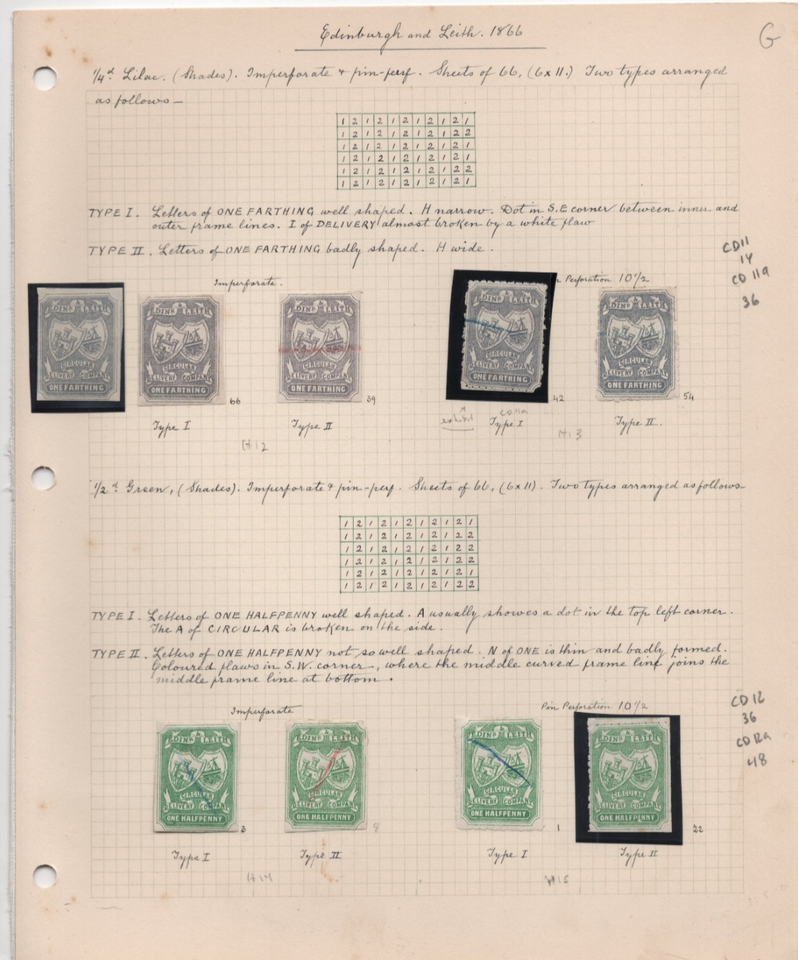 Edinburgh and Leith. 1866
G
1/4d Lilac. (Shades). Imperforate & pin-perf. Sheets of 66, (6x11.) Two types arranged
as follows—
1 2 1 2 1 2 1 2 1 2 1
1 2 1 2 1 2 1 2 1 2 2
1 2 1 2 1 2 1 2 1 2 1
1 2 1 2 1 2 1 2 1 2 1
1 2 1 2 1 2 1 2 1 2 2
1 2 1 2 1 2 1 2 1 2 1
TYPE I. Letters of ONE FARTHING well shaped. H narrow. Dot in S.E corner between inner and
outer frame lines. I of DELIVERY almost broken by a white flaw
TYPE II. Letters of ONE FARTHING badly shaped. H wide.
CD11
14
CD 11a
36
Imperforate.
Perforation 10 1/2
EDINR & LEITH
CIRCULAR
DELIVERY COMPANY
ONE FARTHING
EDINR & LEITH
CIRCULAR
DELIVERY COMPANY
ONE FARTHING
EDINR & LEITH
CIRCULAR
DELIVERY COMPANY
ONE FARTHING
EDINR & LEITH
CIRCULAR
DELIVERY COMPANY
ONE FARTHING
EDINR & LEITH
CIRCULAR
DELIVERY COMPANY
ONE FARTHING
66
39
42
54
Type I
Type II
exhibit
Type I
Type II.
H12
H13
1/2d Green, (Shades). Imperforate & pin-perf. Sheets of 66, (6x11). Two types arranged as follows-
1 2 1 2 1 2 1 2 1 2 1
1 2 1 2 1 2 1 2 1 2 2
1 2 1 2 1 2 1 2 1 2 2
1 2 1 2 1 2 1 2 1 2 2
1 2 1 2 1 2 1 2 1 2 1
1 2 1 2 1 2 1 2 1 2 2
TYPE I. Letters of ONE HALFPENNY well shaped. A usually shows a dot in the top left corner.
The A of CIRCULAR is broken on the side.
TYPE II. Letters of ONE HALFPENNY not so well shaped. N of ONE is thin and badly formed.
Coloured flaws in S.W. corner, where the middle curved frame line joins the
middle frame line at bottom.
CD12
36
CD12a
48
Imperforate
Pin Perforation 10 1/2
EDINR & LEITH
CIRCULAR
DELIVERY COMPANY
ONE HALFPENNY
EDINR & LEITH
CIRCULAR
DELIVERY COMPANY
ONE HALFPENNY
EDINR & LEITH
CIRCULAR
DELIVERY COMPANY
ONE HALFPENNY
EDINR & LEITH
CIRCULAR
DELIVERY COMPANY
ONE HALFPENNY
3
8
1
22
Type I
Type II
Type I
Type II
H14
H15